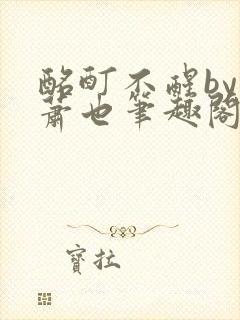 酩酊不醒by
萧也笔趣阁
寶拉